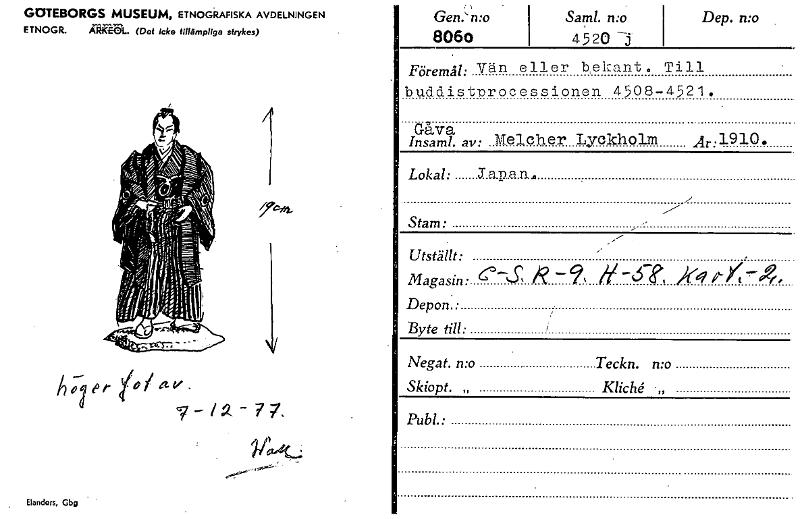 GÖTEBORGS MUSEUM, ETNOGRAFISKA AVDELNINGEN
ETNOGR. ARKEOL. (Det icke tillämpliga strykes)
19cm
höger fot av.
7-12-77.
Elanders, Gbg
Gen. n:o Saml. n:o Dep. n:o
8060 4520 j
Föremål: Vän eller bekant. Till
buddistprocessionen 4508-4521.
Gåva
Insaml. av: Melcher Lyckholm År: 1910.
Lokal: Japan.
Stam:
Utställt:
Magasin: C-S. R-9. H-58. Kart.-2.
Depon.:
Byte till:
Negat. n:o Teckn. n:o
Skiopt. „ Kliché „
Publ.: